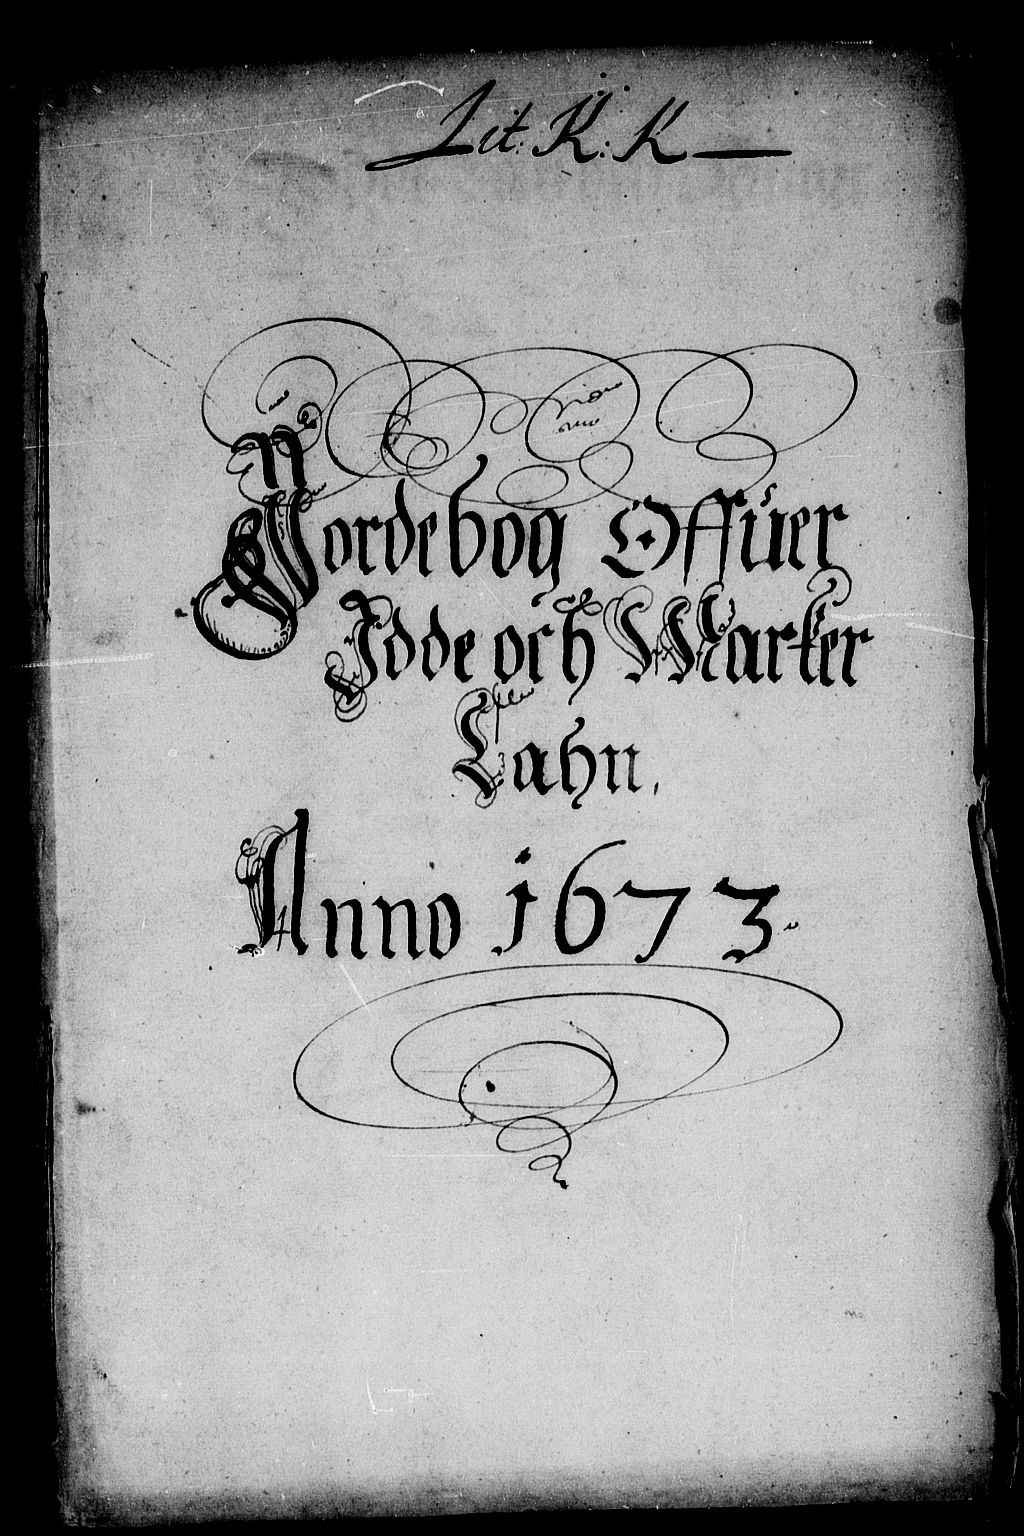 Lit: K: K
Jordebog Offuer
Idde och Marker
Lahn.
Anno 1673.